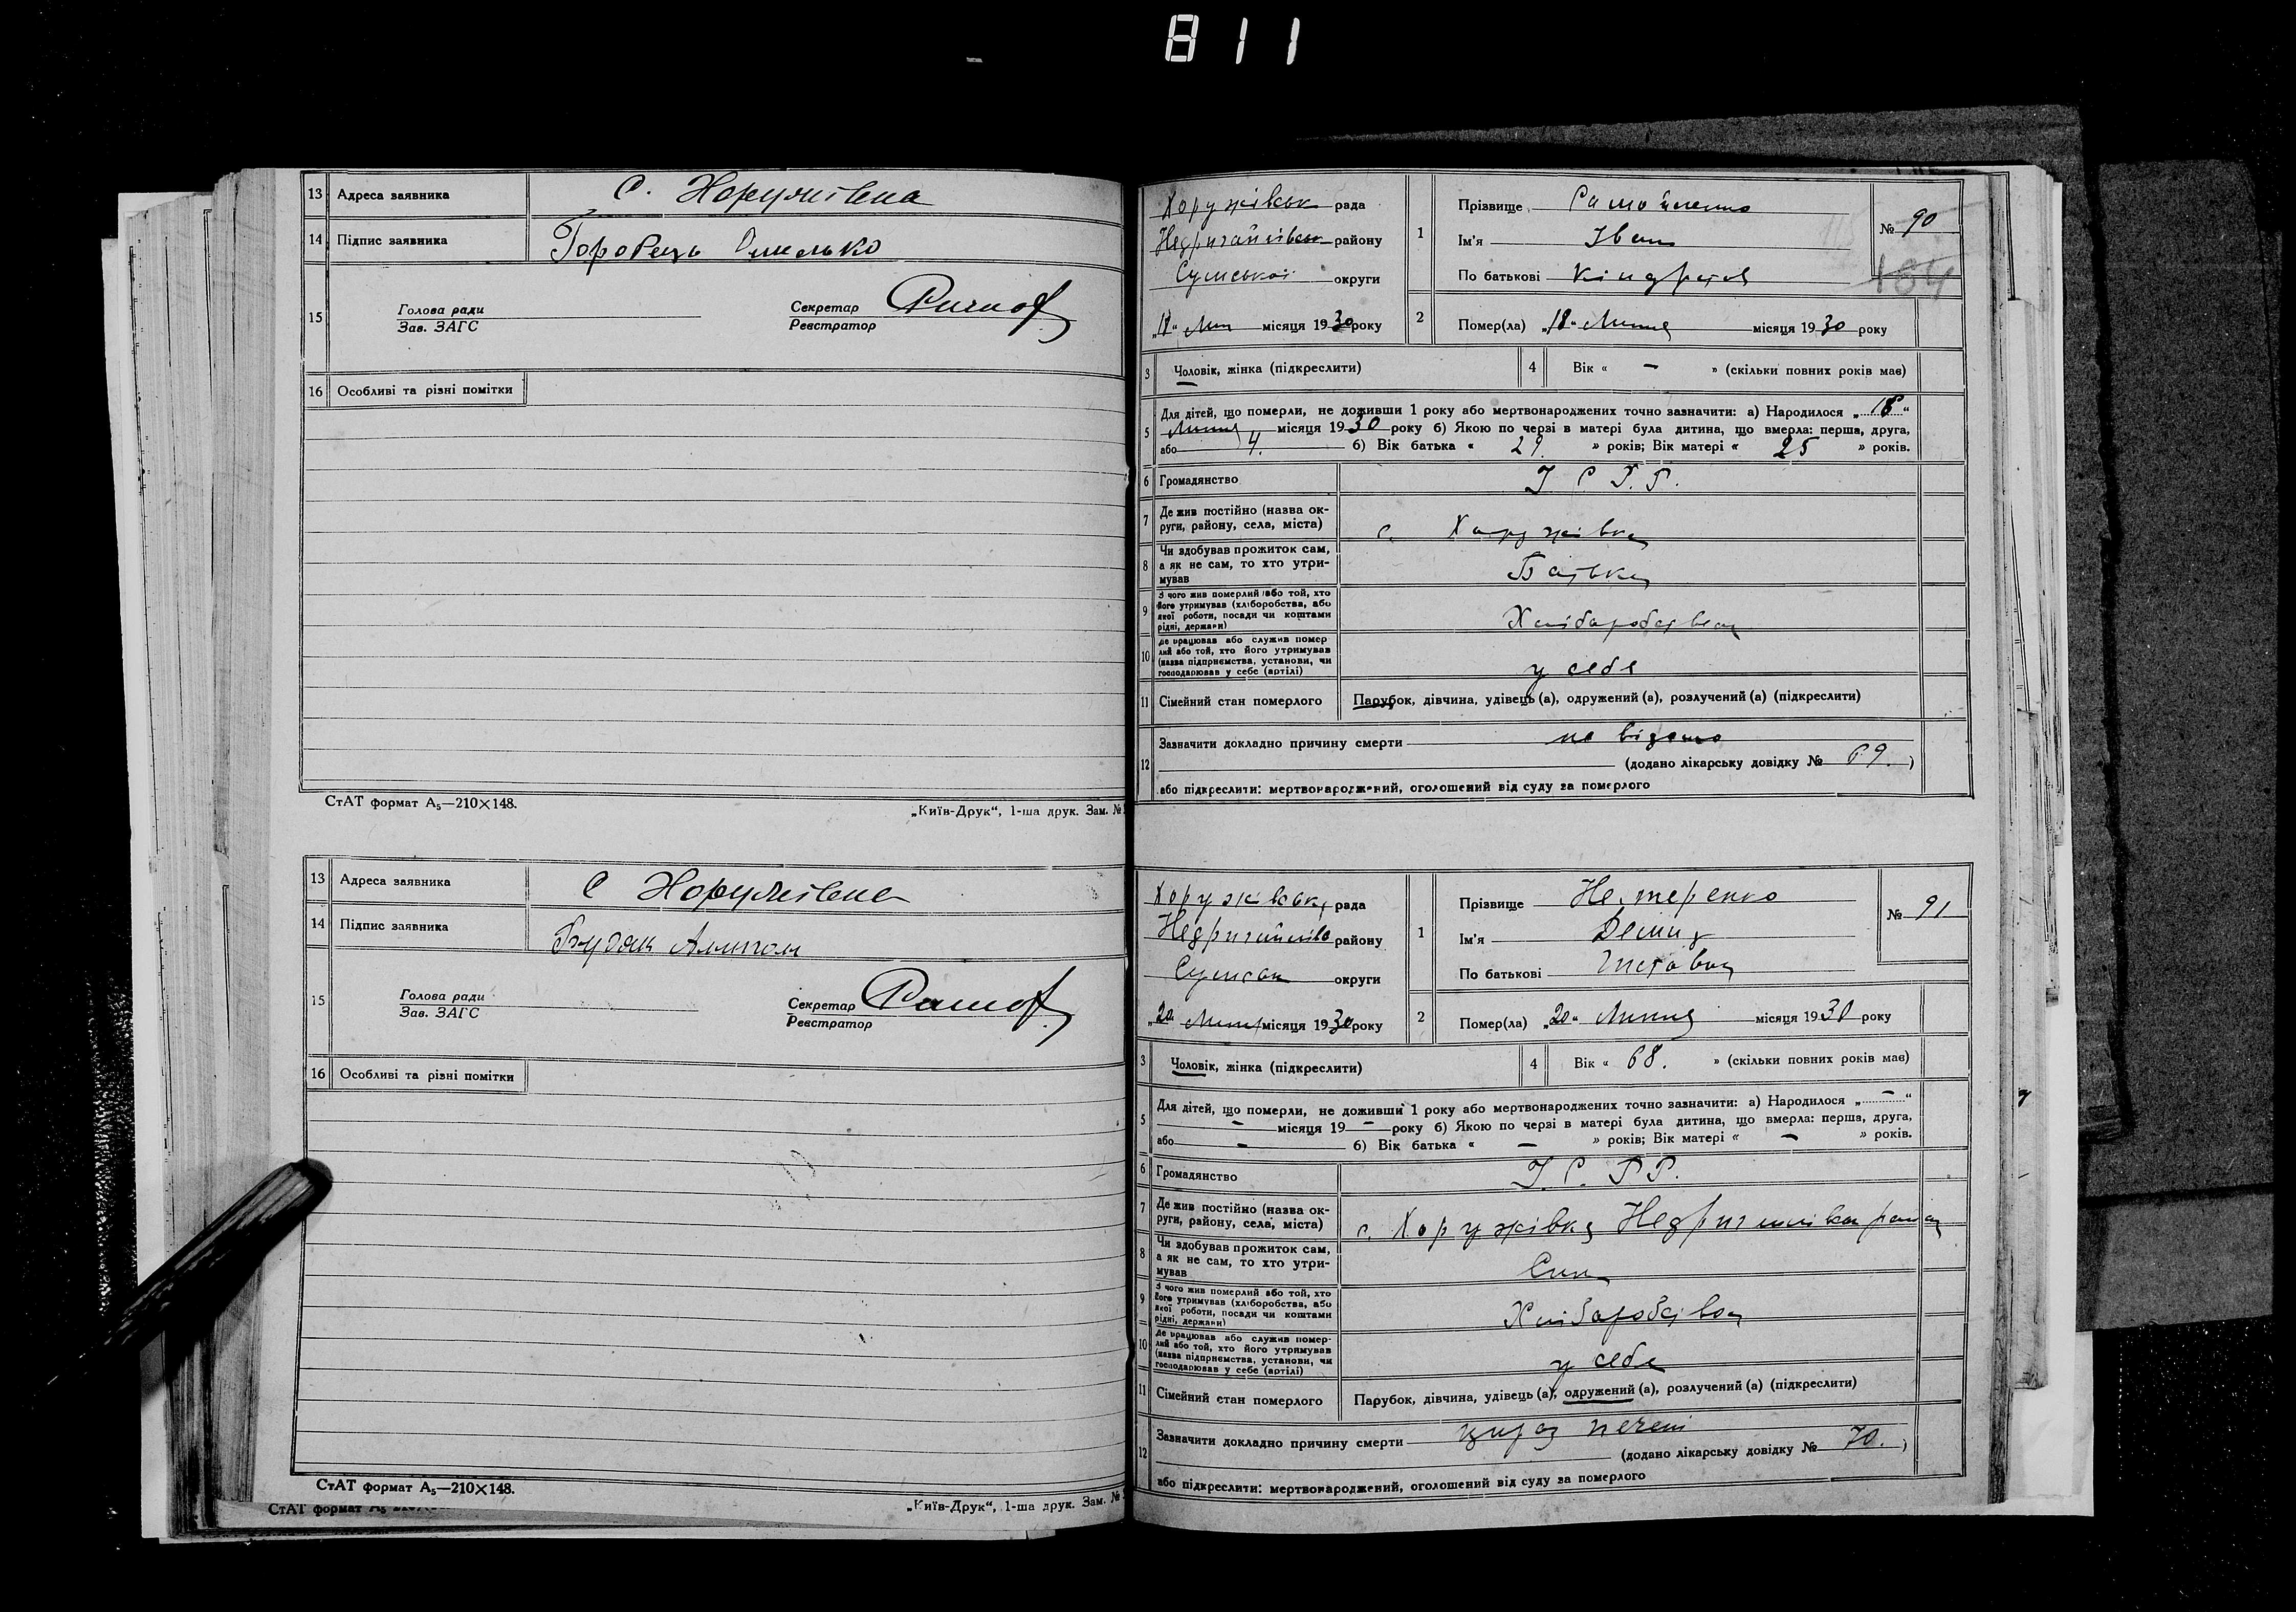 811
13 Адреса заявника С. Хоружівка
14 Підпис заявника Горобець Омелько
15 Голова ради
Зав. ЗАГС
Секретар
Реєстратор
16 Особливі та різні помітки
СтАТ формат А5—210×148.
„Київ-Друк“, 1-ша друк. Зам. №
13 Адреса заявника С Хоружівка
14 Підпис заявника Будак
15 Голова ради
Зав. ЗАГС
Секретар
Реєстратор
16 Особливі та різні помітки
СтАТ формат А5—210×148.
„Київ-Друк“, 1-ша друк. Зам. №
СтАТ формат А5
Хоружівськ рада
Недригайлівськ району
Сумської округи
„18“ Лип місяця 1930 року
1 Прізвище Самойленко
Ім'я Іван
По батькові Кіндратов
№ 90
184
2 Помер(ла) „18“ Липня місяця 1930 року
3 Чоловік, жінка (підкреслити)
4 Вік « — » (скільки повних років має)
5 Для дітей, що померли, не доживши 1 року або мертвонароджених точно зазначити: а) Народилося „18“
Липня місяця 1930 року б) Якою по черзі в матері була дитина, що вмерла: перша, друга,
або 4. б) Вік батька « 29. » років; Вік матері « 25 » років.
6 Громадянство У. С. Р. Р.
7 Де жив постійно (назва округи, району, села, міста) с. Хоружівка
8 Чи здобував прожиток сам,
а як не сам, то хто утримував Батька
9 З чого жив померлий або той, хто
його утримував (хліборобства, або
якої роботи, посади чи коштами
рідні, держави) Хліборобства
10 Де працював або служив померлий або той, хто його утримував
(назва підприємства, установи, чи
господарював у себе (артілі) у себе
11 Сімейний стан померлого Парубок, дівчина, удівець (а), одружений (а), розлучений (а) (підкреслити)
12 Зазначити докладно причину смерти не відомо
(додано лікарську довідку № 69. )
або підкреслити: мертвонароджений, оголошений від суду за померлого
Хоружівськ рада
Недригайлів району
Сумськ округи
„20“ Липн місяця 1930 року
1 Прізвище Нестеренко
Ім'я Демид
По батькові
№ 91
2 Помер(ла) „20“ Липня місяця 1930 року
3 Чоловік, жінка (підкреслити)
4 Вік « 68. » (скільки повних років має)
5 Для дітей, що померли, не доживши 1 року або мертвонароджених точно зазначити: а) Народилося „ — “
— місяця 19 — року б) Якою по черзі в матері була дитина, що вмерла: перша, друга,
або — б) Вік батька « — » років; Вік матері « — » років.
6 Громадянство У. С. Р Р.
7 Де жив постійно (назва округи, району, села, міста) с. Хоружівка
8 Чи здобував прожиток сам,
а як не сам, то хто утримував Син
9 З чого жив померлий або той, хто
його утримував (хліборобства, або
якої роботи, посади чи коштами
рідні, держави) Хліборобства
10 Де працював або служив померлий або той, хто його утримував
(назва підприємства, установи, чи
господарював у себе (артілі) у себе
11 Сімейний стан померлого Парубок, дівчина, удівець (а), одружений (а), розлучений (а) (підкреслити)
12 Зазначити докладно причину смерти цироз печені
(додано лікарську довідку № 70. )
або підкреслити: мертвонароджений, оголошений від суду за померлого